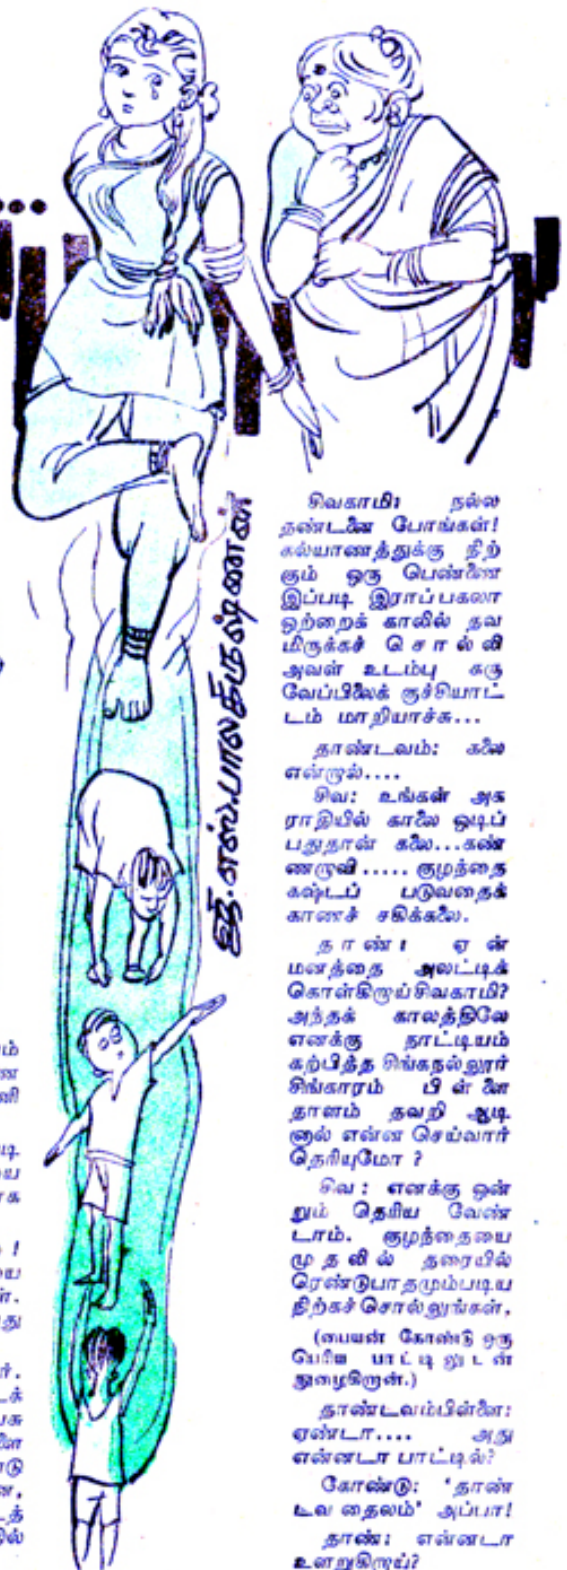 ஜி.எஸ்.பாலகிருஷ்ணன்
சிவகாமி: நல்ல
தண்டனை போங்கள்!
கல்யாணத்துக்கு நிற்
கும் ஒரு பெண்ணை
இப்படி இராப்பகலா
ஒற்றைக் காலில் தவ
மிருக்கச் சொல்லி
அவள் உடம்பு கரு
வேப்பிலைக் குச்சியாட்
டம் மாறியாச்சு...
தாண்டவம்: கலை
என்றால்....
சிவ: உங்கள் அக
ராதியில் காலை ஒடிப்
பதுதான் கலை...கண்
ணழுவி..... குழந்தை
கஷ்டப் படுவதைக்
காணச் சகிக்கலை.
தாண்: ஏன்
மனத்தை அலட்டிக்
கொள்கிறாய் சிவகாமி?
அந்தக் காலத்திலே
எனக்கு நாட்டியம்
கற்பித்த சிங்கநல்லூர்
சிங்காரம் பிள்ளை
தாளம் தவறி ஆடி
னால் என்ன செய்வார்
தெரியுமோ ?
சிவ : எனக்கு ஒன்
றும் தெரிய வேண்
டாம். குழந்தையை
முதலில் தரையில்
ரெண்டுபாதமும்படிய
நிற்கச் சொல்லுங்கள்.
(பையன் கோண்டு ஒரு
பெரிய பாட்டிலுடன்
நுழைகிறான்.)
தாண்டவம்பிள்ளை:
ஏண்டா.... அது
என்னடா பாட்டில்?
கோண்டு: 'தாண்
டவ தைலம்' அப்பா!
தாண்: என்னடா
உளறுகிறாய்?